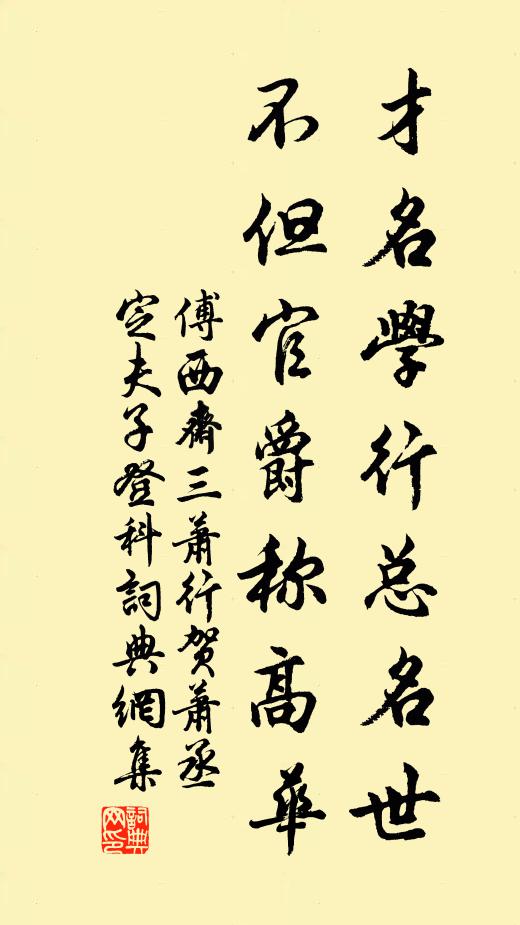 才名學行总名世
不但官爵称高華
傅西齋三萧行贺萧丞
定夫子登科詞典網集
詞典网印